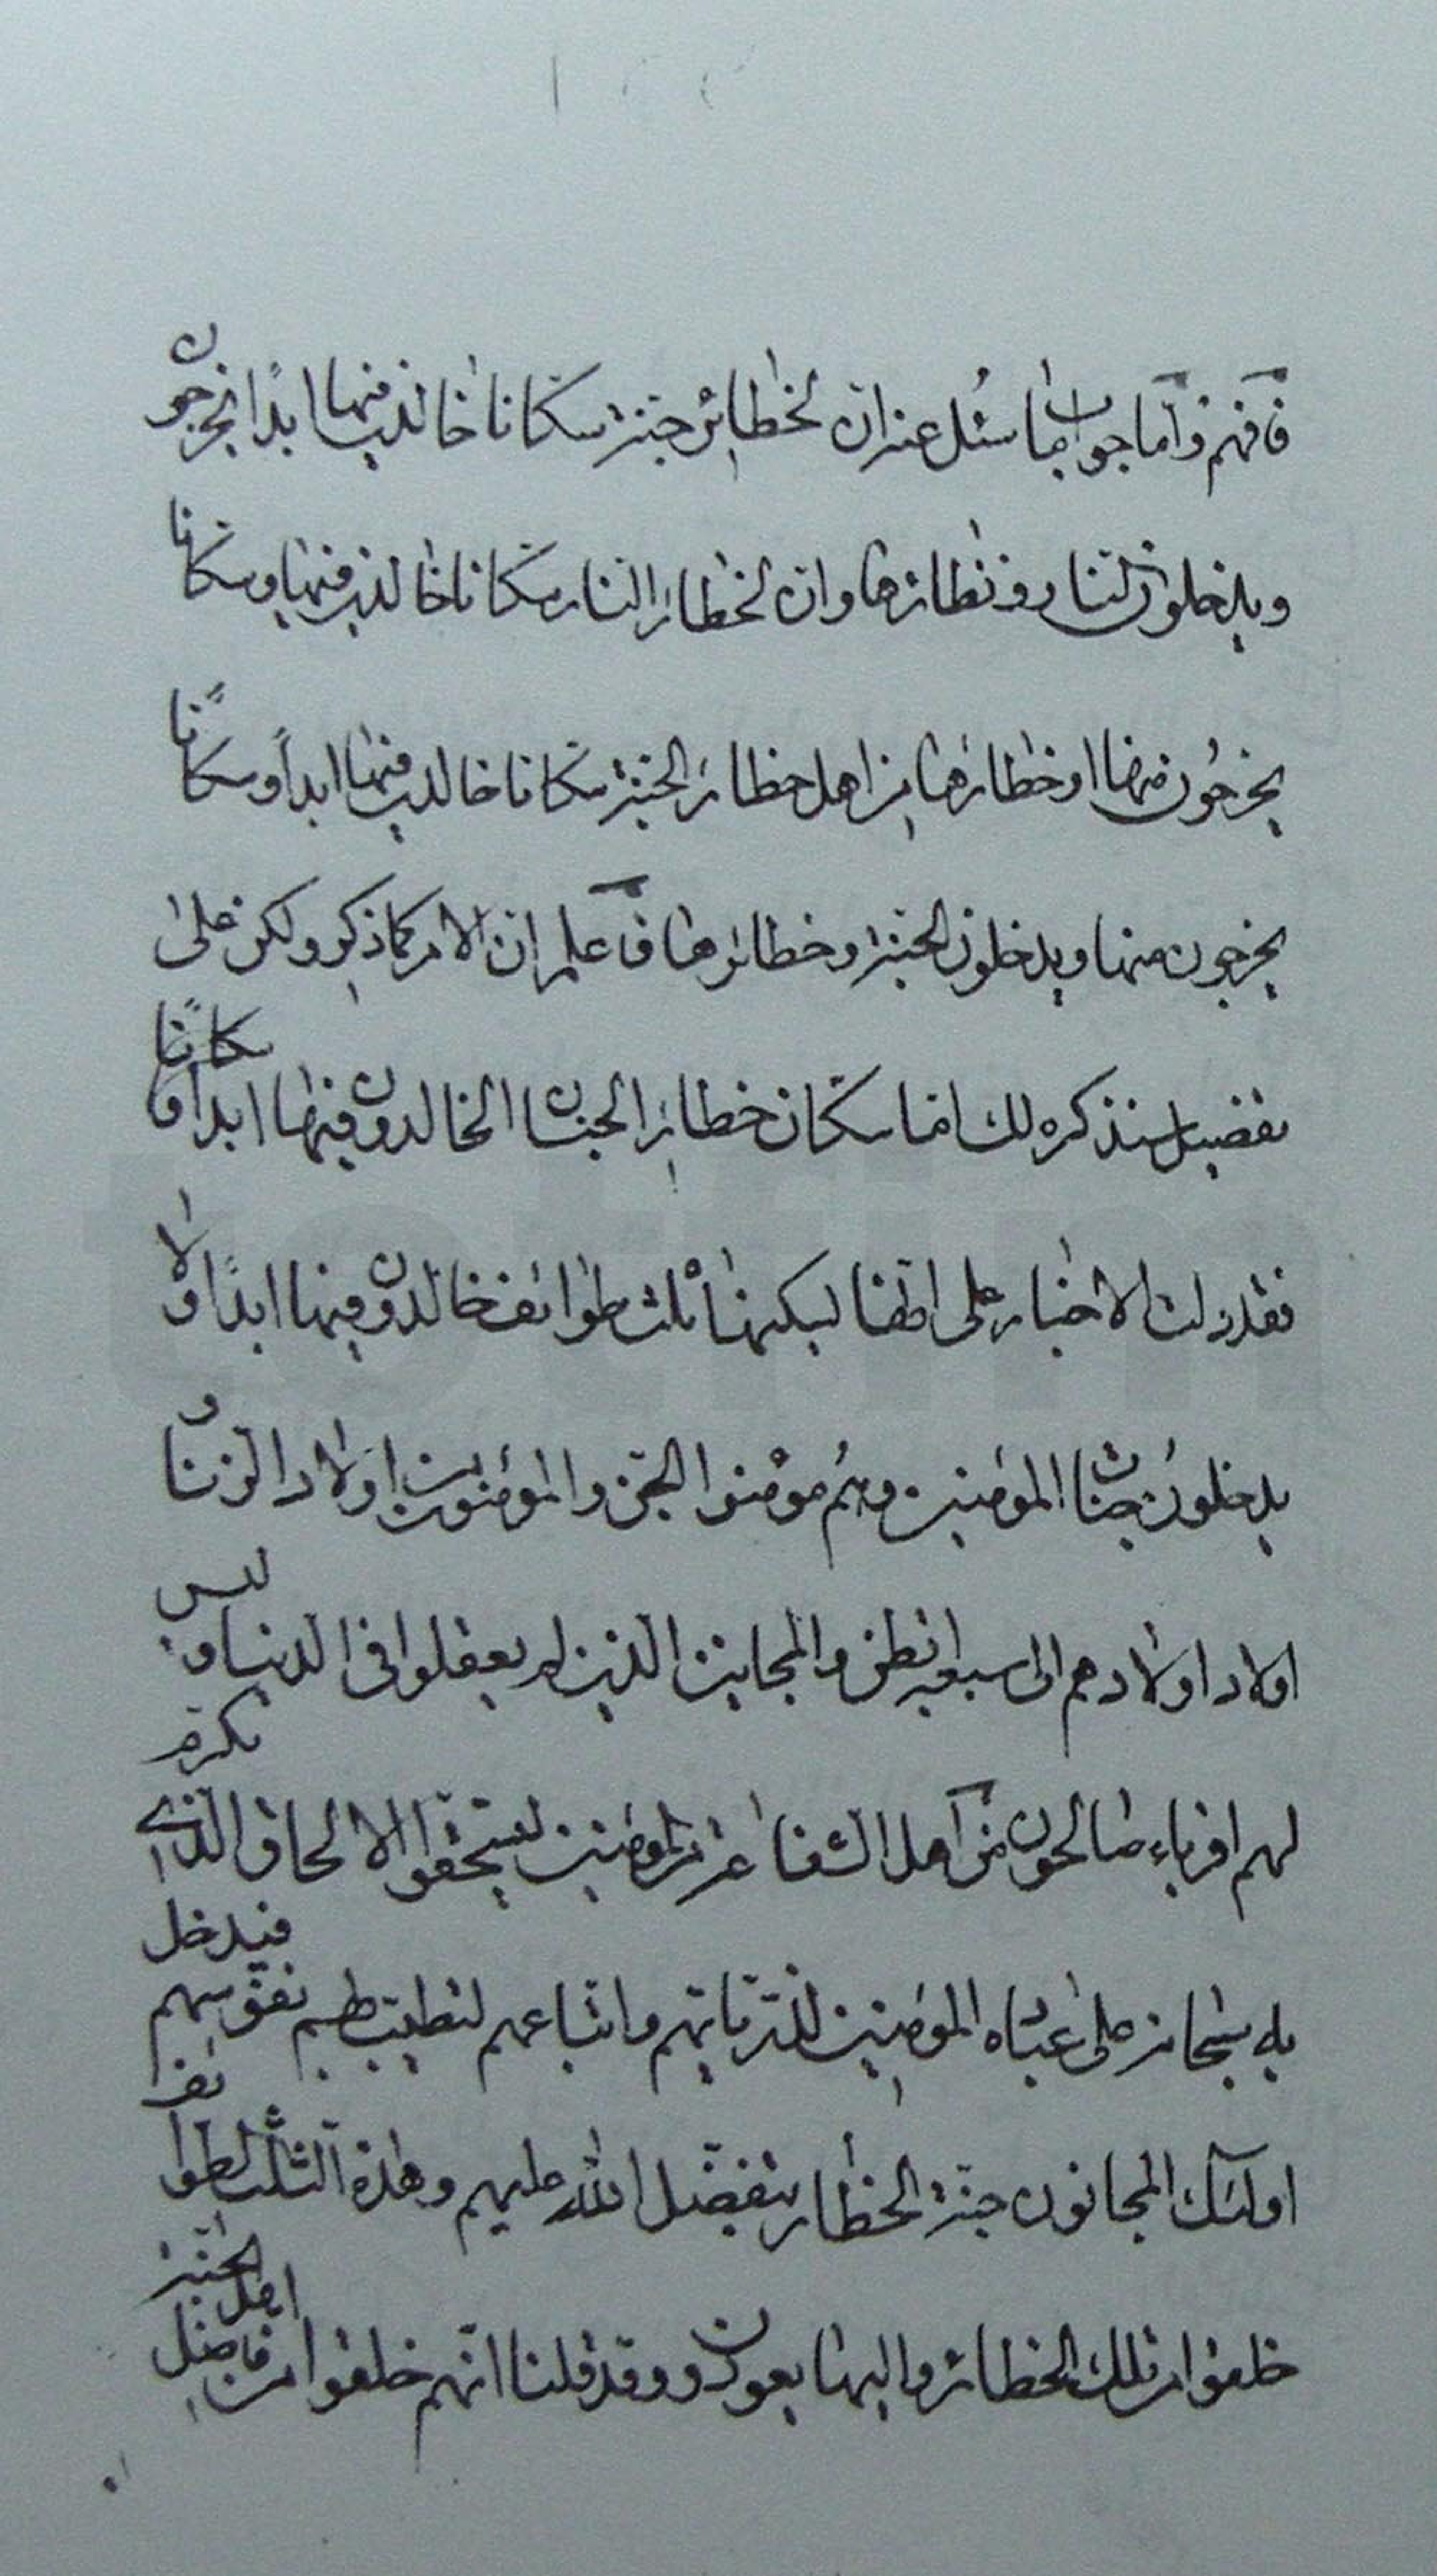 فافهم وامّا جواب ما سئل عنه انّ لحظائر جنة سكّانا خالدين فيها ابدًا يخرجون
ويدخلون النار ونظائرها وان لحظائر النار سكّانا خالدين فيها وسكّانا
يخرجُون منها او حظائرها من اهل حظائر الجنة سكّانا خالدين فيها ابداً وسكّانًا
يخرجون منها ويدخلون الجنة وحظائرها فاعلم ان الامر كما ذكر ولكن على
تفضيل سنذكره لك امّا سكّان حظائر الجنان الخالدون فيها ابدا وسكانًا
فقد دلت الاخبار على انّها ليسكنها ثلث طوائف خالدون فيها ابدًا ولا
يدخلون جنان المؤمنين وهُم مؤمنوا الجنّ والمؤمنون من اولاد الزنا و
اولاد اولادهم الى سبعة ابطن والمجانين الذين لم يعقلوا في الدنيا وليس
لهم اقرباء صالحون من اهل الشفاعة من المؤمنين ليستحقوا الالحاق الذي تكرّم
به سبحانه على عباده المؤمنين لذرّياتهم واتباعهم لتطيب بهم نفوسهم فيدخل
اولئك المجانون جنّة الحظائر بتفضّل الله عليهم وهذه الثلث الطوائف
خلقوا من تلك الحظائر واليها يعودون وقد قلنا انّهم خلقوا من فاضل اهل الجنّة